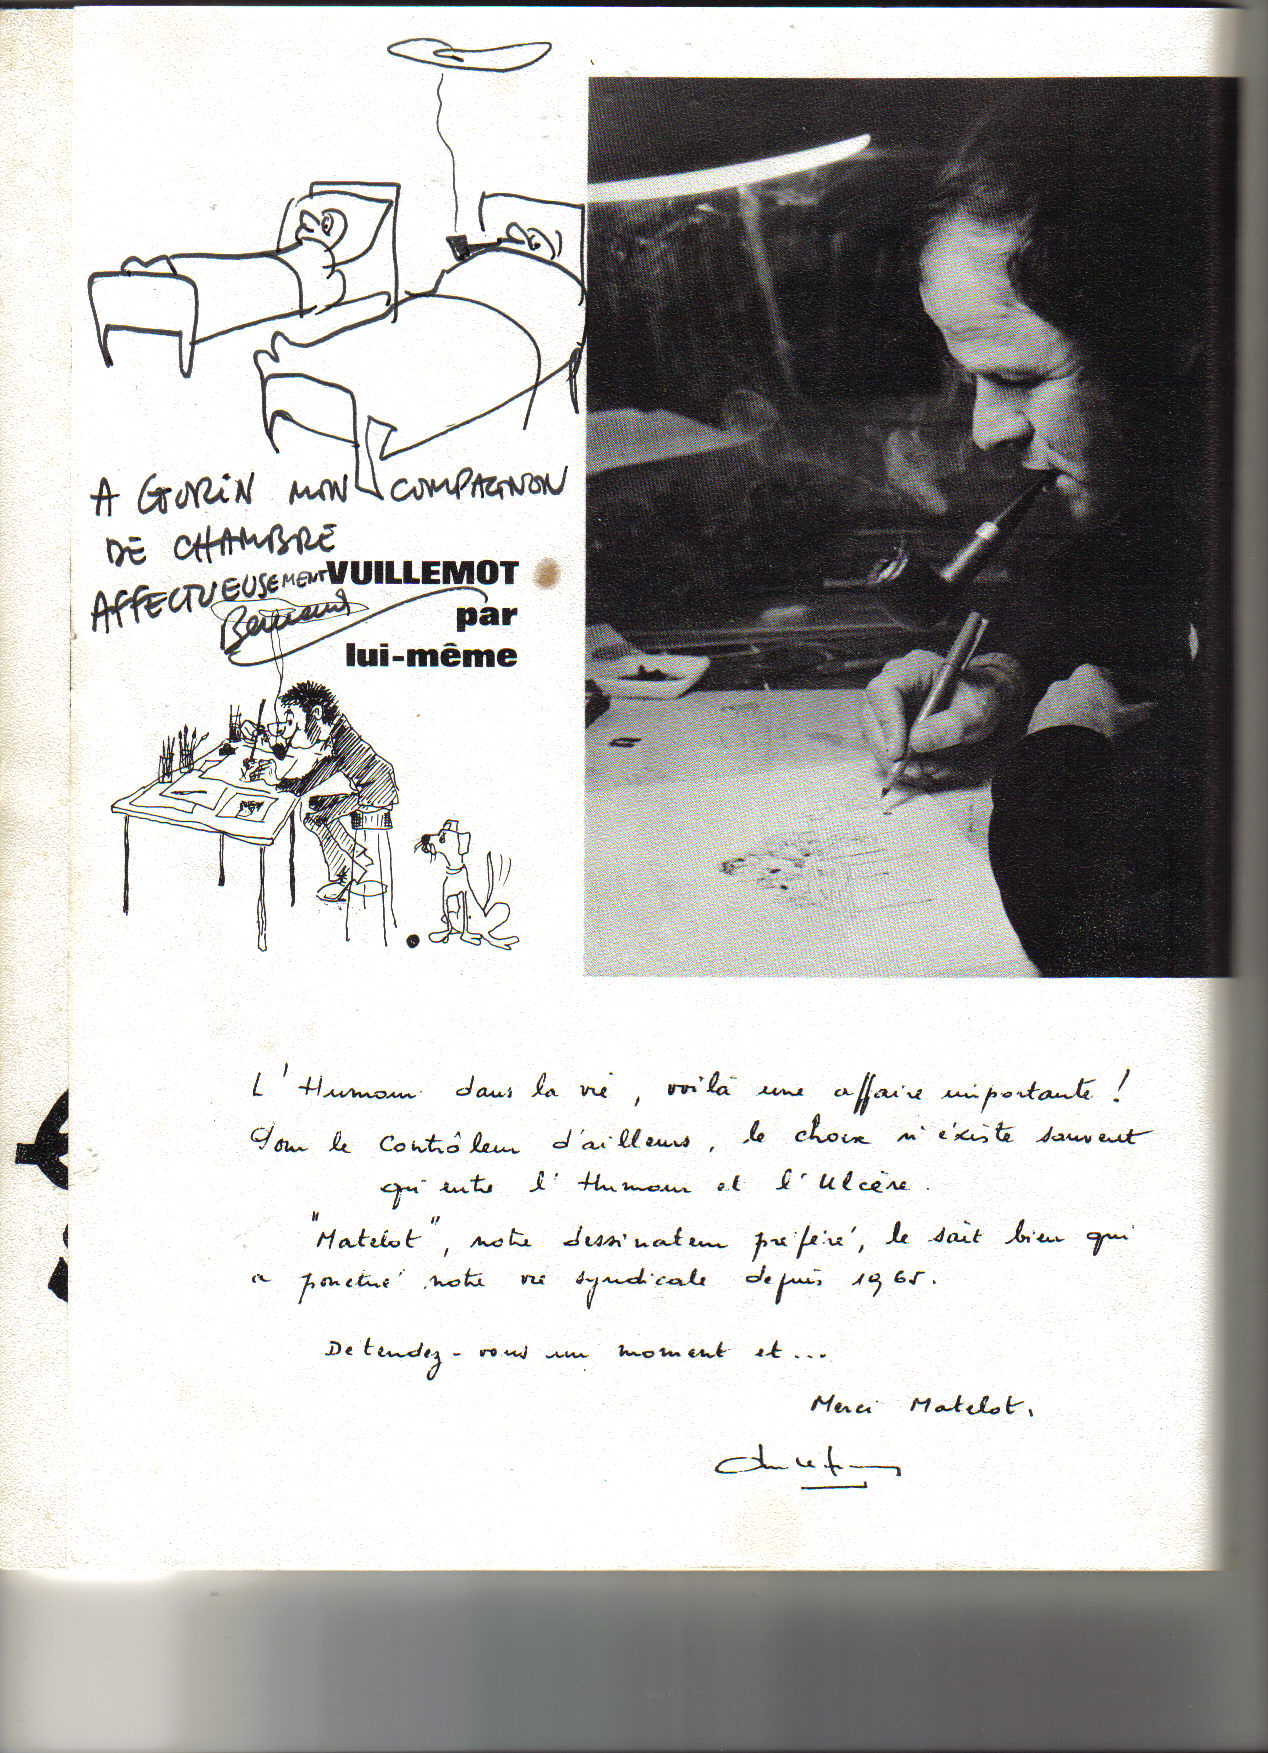 A GORiN MON COMPAGNON
DE CHAMBRE
AFFECTUEUSEMENT
VUILLEMOT
par
lui-même
L'Humour dans la vie, voilà une affaire importante !
Pour le Contrôleur d'ailleurs, le choix n'existe souvent
qu'entre l'Humour et l'Ulcère.
"Matelot", notre dessinateur préféré, le sait bien qui
a ponctué notre vie syndicale depuis 1965.
Detendez-vous un moment et...
Merci Matelot.